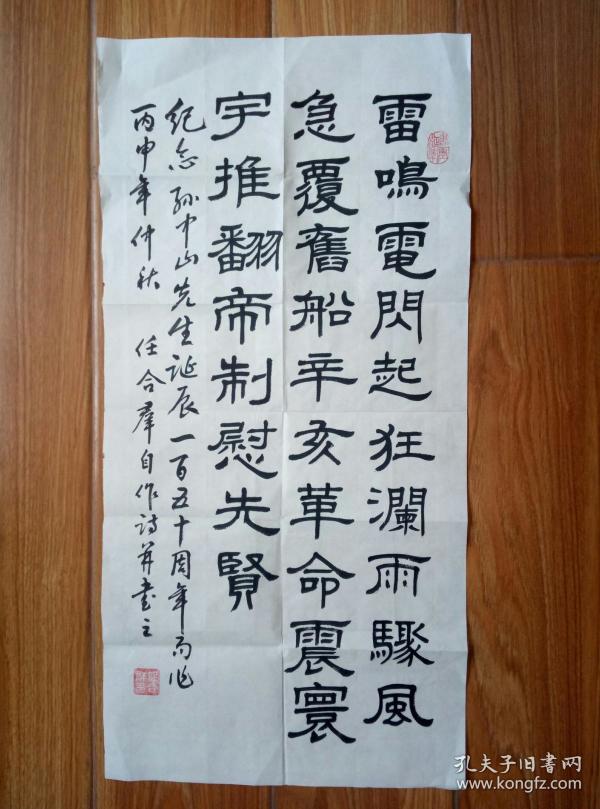 雷鳴電閃起狂瀾雨驟風
急覆舊船辛亥革命震寰
宇推翻帝制慰先賢
紀念孙中山先生诞辰一百五十周年而作
丙申年仲秋 任合羣自作诗并书之
孔夫子旧书网
www.kongfz.com